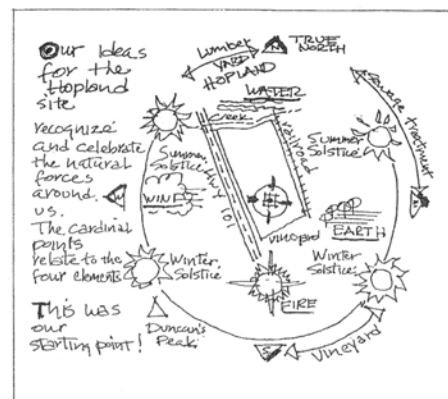 Our Ideas
for the
Hopland
site
recognize
and celebrate
the natural
forces
around
us.
The cardinal
points
relate to the
four elements
This was
our
starting point!
Lumber
YARD
HOPLAND
N
TRUE
NORTH
WATER
creek
railroad
Sewage treatment
Summer
Solstice
Summer
Solstice
Hwy 101
W
WIND
E
EARTH
vineyard
Winter
Solstice
Winter
Solstice
FIRE
Duncan's
Peak
S
Vineyard